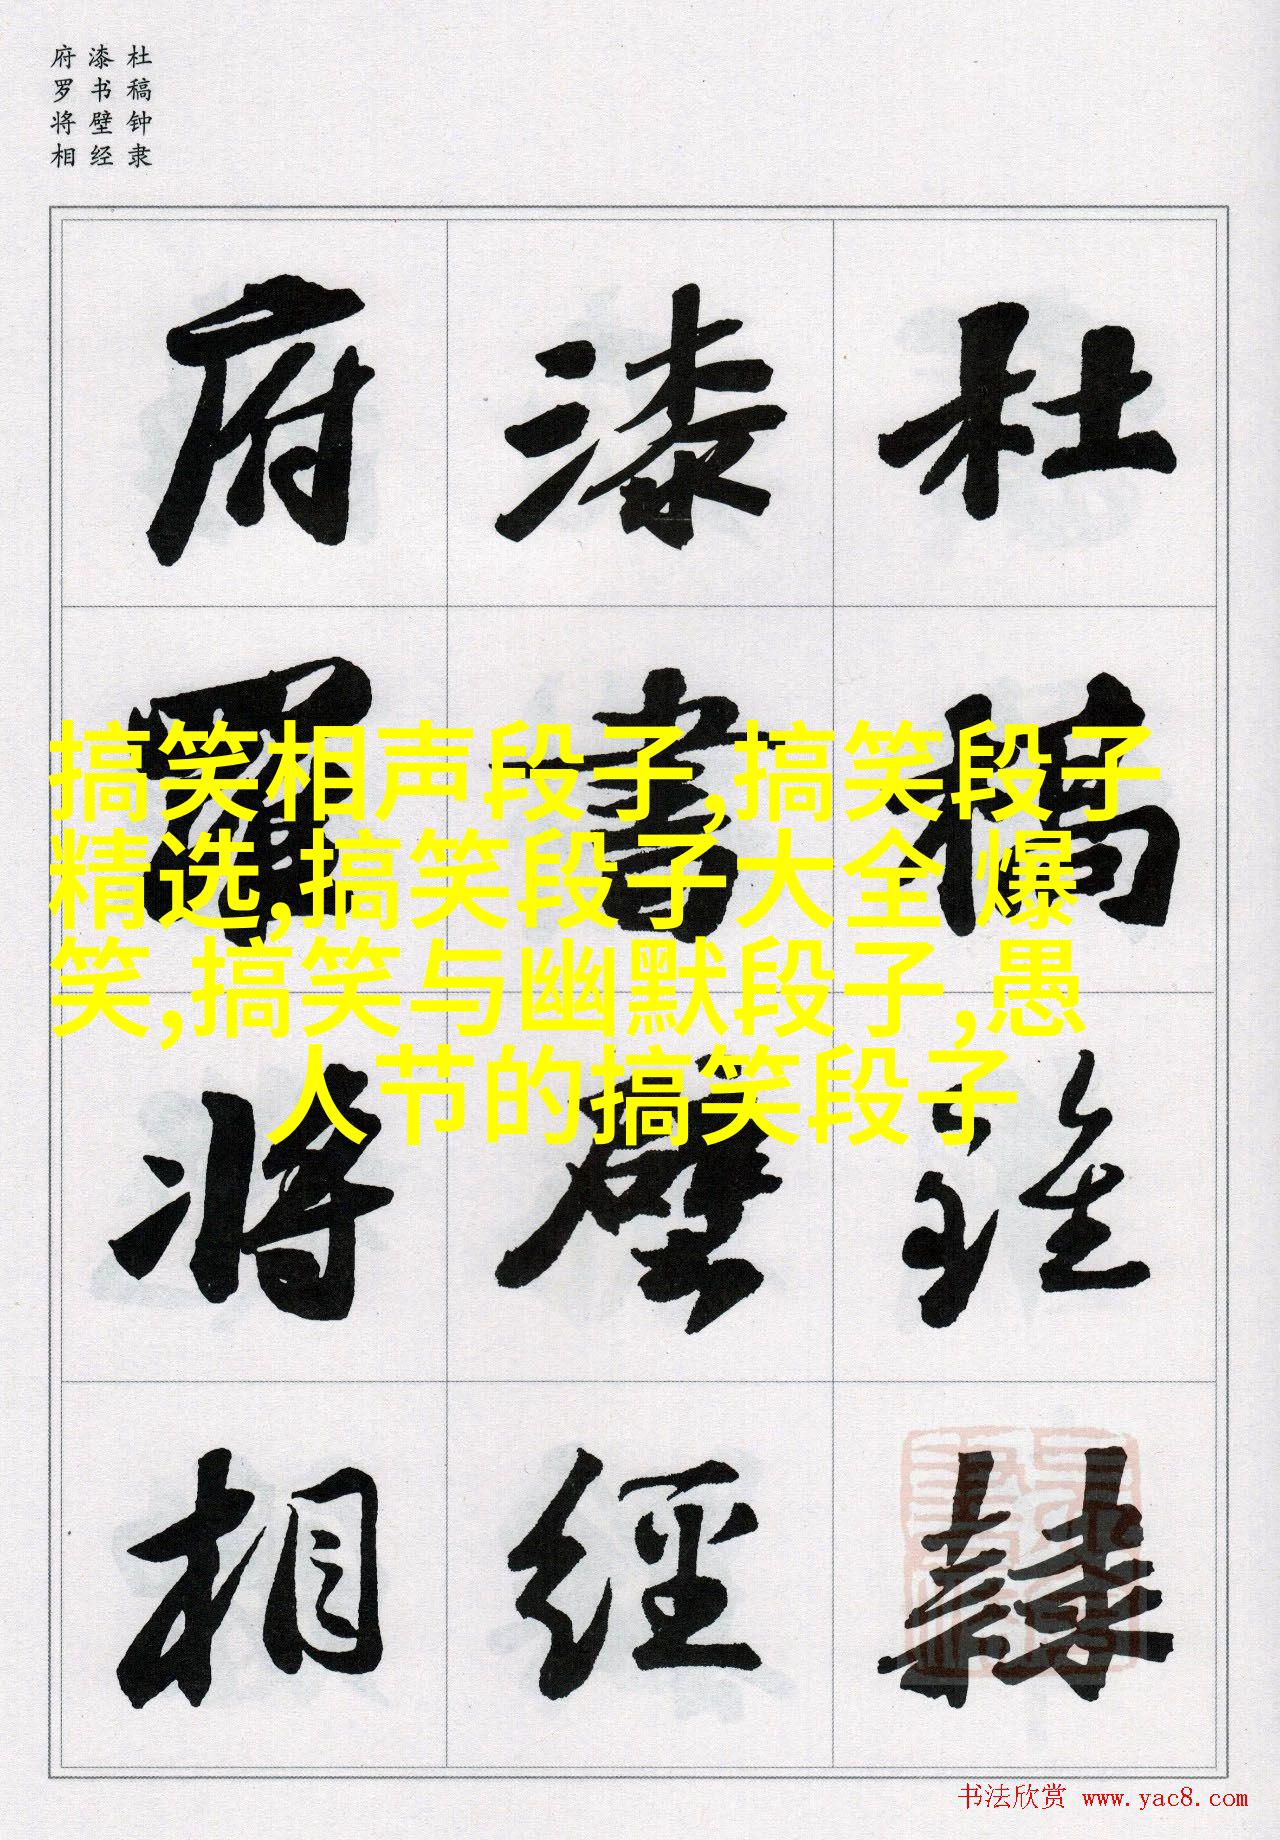 杜稿钟隶
漆书壁经
府罗将相
杜稾鍾隸
漆書壁經
府羅將相
搞笑相声段子,搞笑段子
精选,搞笑段子大全 爆
笑,搞笑与幽默段子,愚
人节的搞笑段子
书法欣赏 www.yac8.com